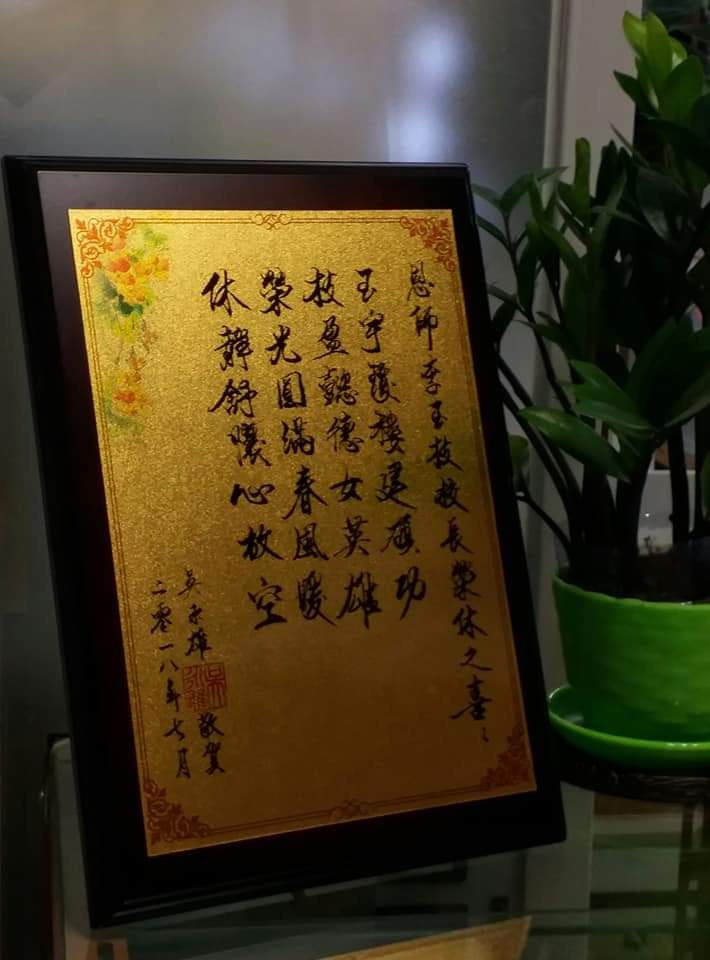 恩師李玉技校長榮休之喜
玉宇瓊樓建碩功
技盈懿德女英雄
榮光圓滿春風暖
休舒懷心放空
吳永雄 敬賀
二零一八年七月